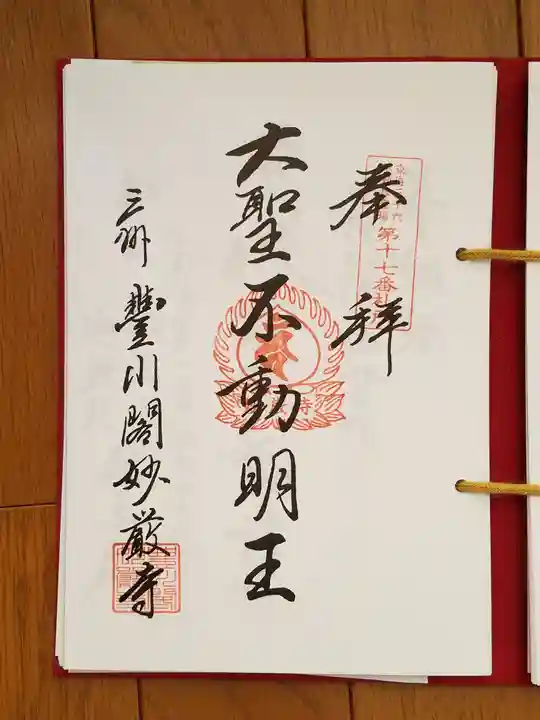 奉拝
第十七番札所
大聖不動明王
三州 豐川閣妙厳寺